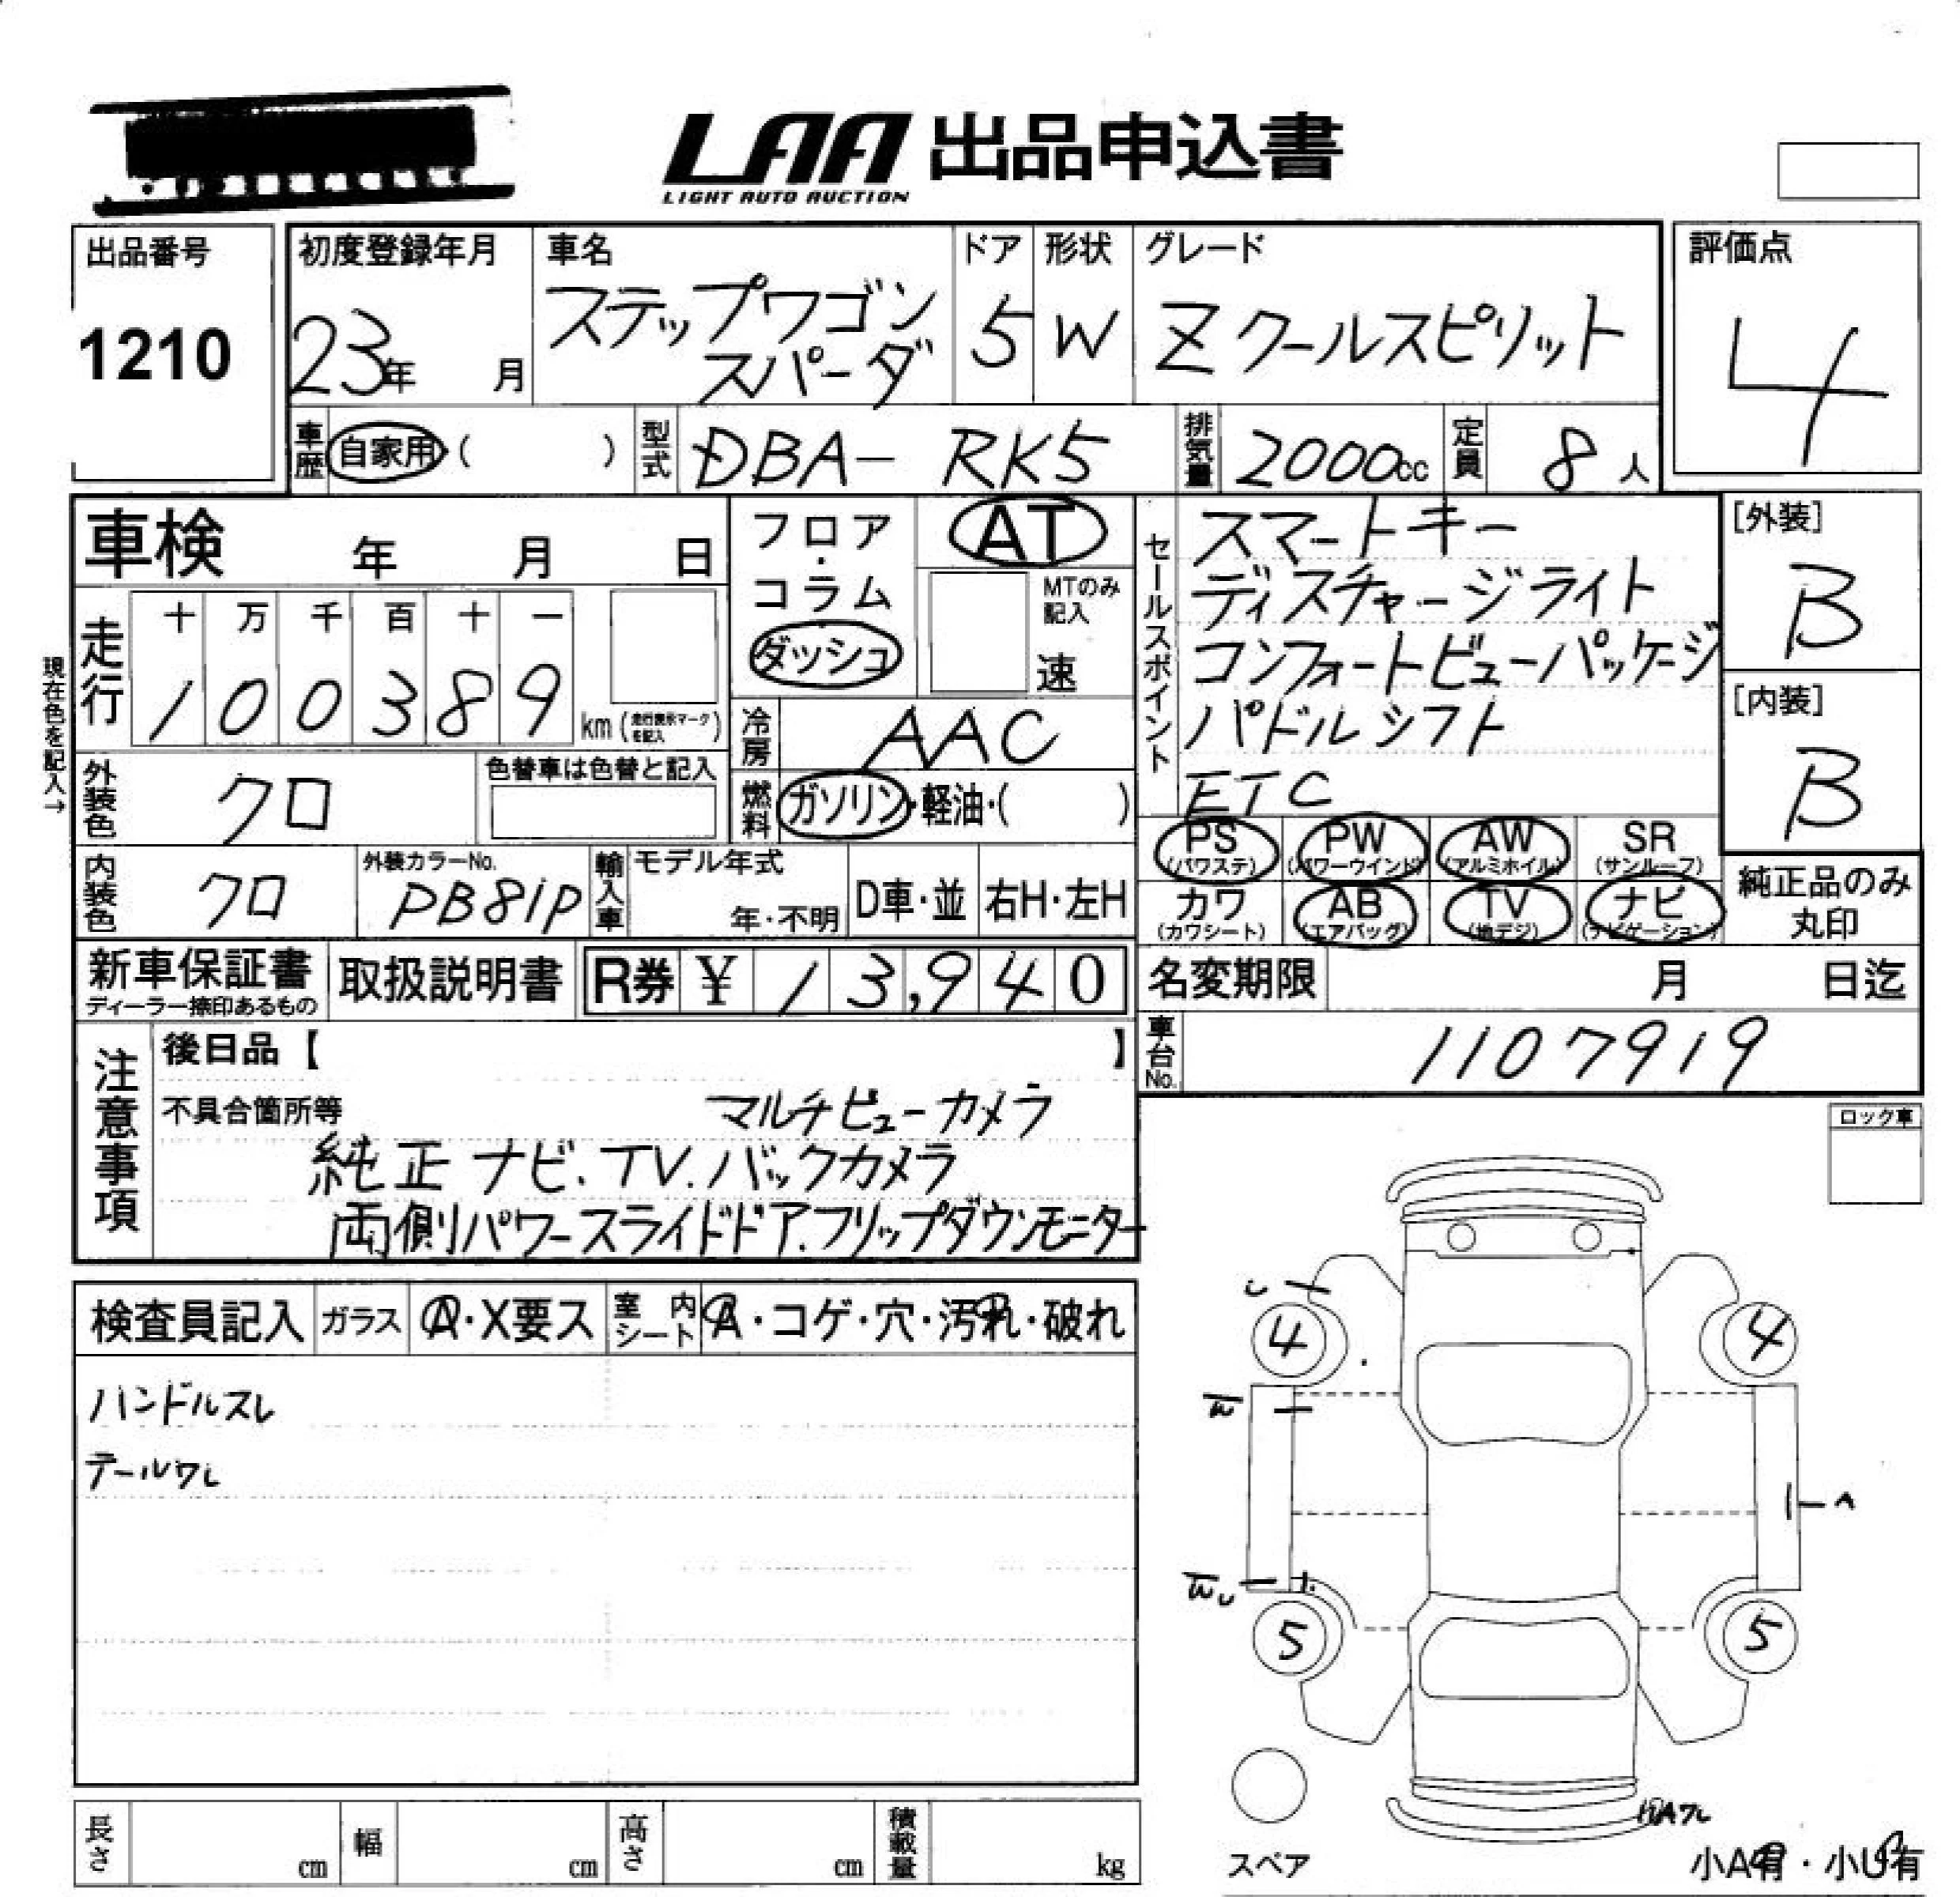 LAA 出品申込書
LIGHT AUTO AUCTION
出品番号
1210
初度登録年月
23年 月
車名
ステップワゴン
スパーダ
ドア
5
形状
W
グレード
Z クールスピリット
評価点
4
車歴 自家用 ( )
型式 DBA- RK5
排気量 2000cc
定員 8人
車検 年 月 日
フロア・
コラム・
ダッシュ
AT
MTのみ
記入
速
セールスポイント
スマートキー
ディスチャージライト
コンフォートビューパッケージ
パドルシフト
ETC
[外装]
B
[内装]
B
現在色を記入→
走行
十 万 千 百 十 一
1 0 0 3 8 9 km (走行表示マークを記入)
冷房 AAC
外装色 クロ
色替車は色替と記入
燃料 ガソリン・軽油・( )
PS (パワステ) PW (パワーウインド) AW (アルミホイル) SR (サンルーフ)
内装色 クロ
外装カラーNo.
PB81P
輸入車
モデル年式
年・不明
D車・並 右H・左H
カワ (カワシート) AB (エアバッグ) TV (地デジ) ナビ (ナビゲーション)
純正品のみ
丸印
新車保証書
ディーラー捺印あるもの
取扱説明書
R券 ¥ 13,940
名変期限 月 日迄
車台No. 1107919
注意事項
後日品【 】
不具合箇所等 マルチビューカメラ
純正ナビ.TV.バックカメラ
両側パワースライドドア.フリップダウンモニター
ロック車
検査員記入 ガラス A・X要ス 室内シート A・コゲ・穴・汚れ・破れ
ハンドルスレ
テールワレ
U
4 4
W
A
WU
5 5
スペア
小A有・小U有
長さ cm 幅 cm 高さ cm 積載量 kg